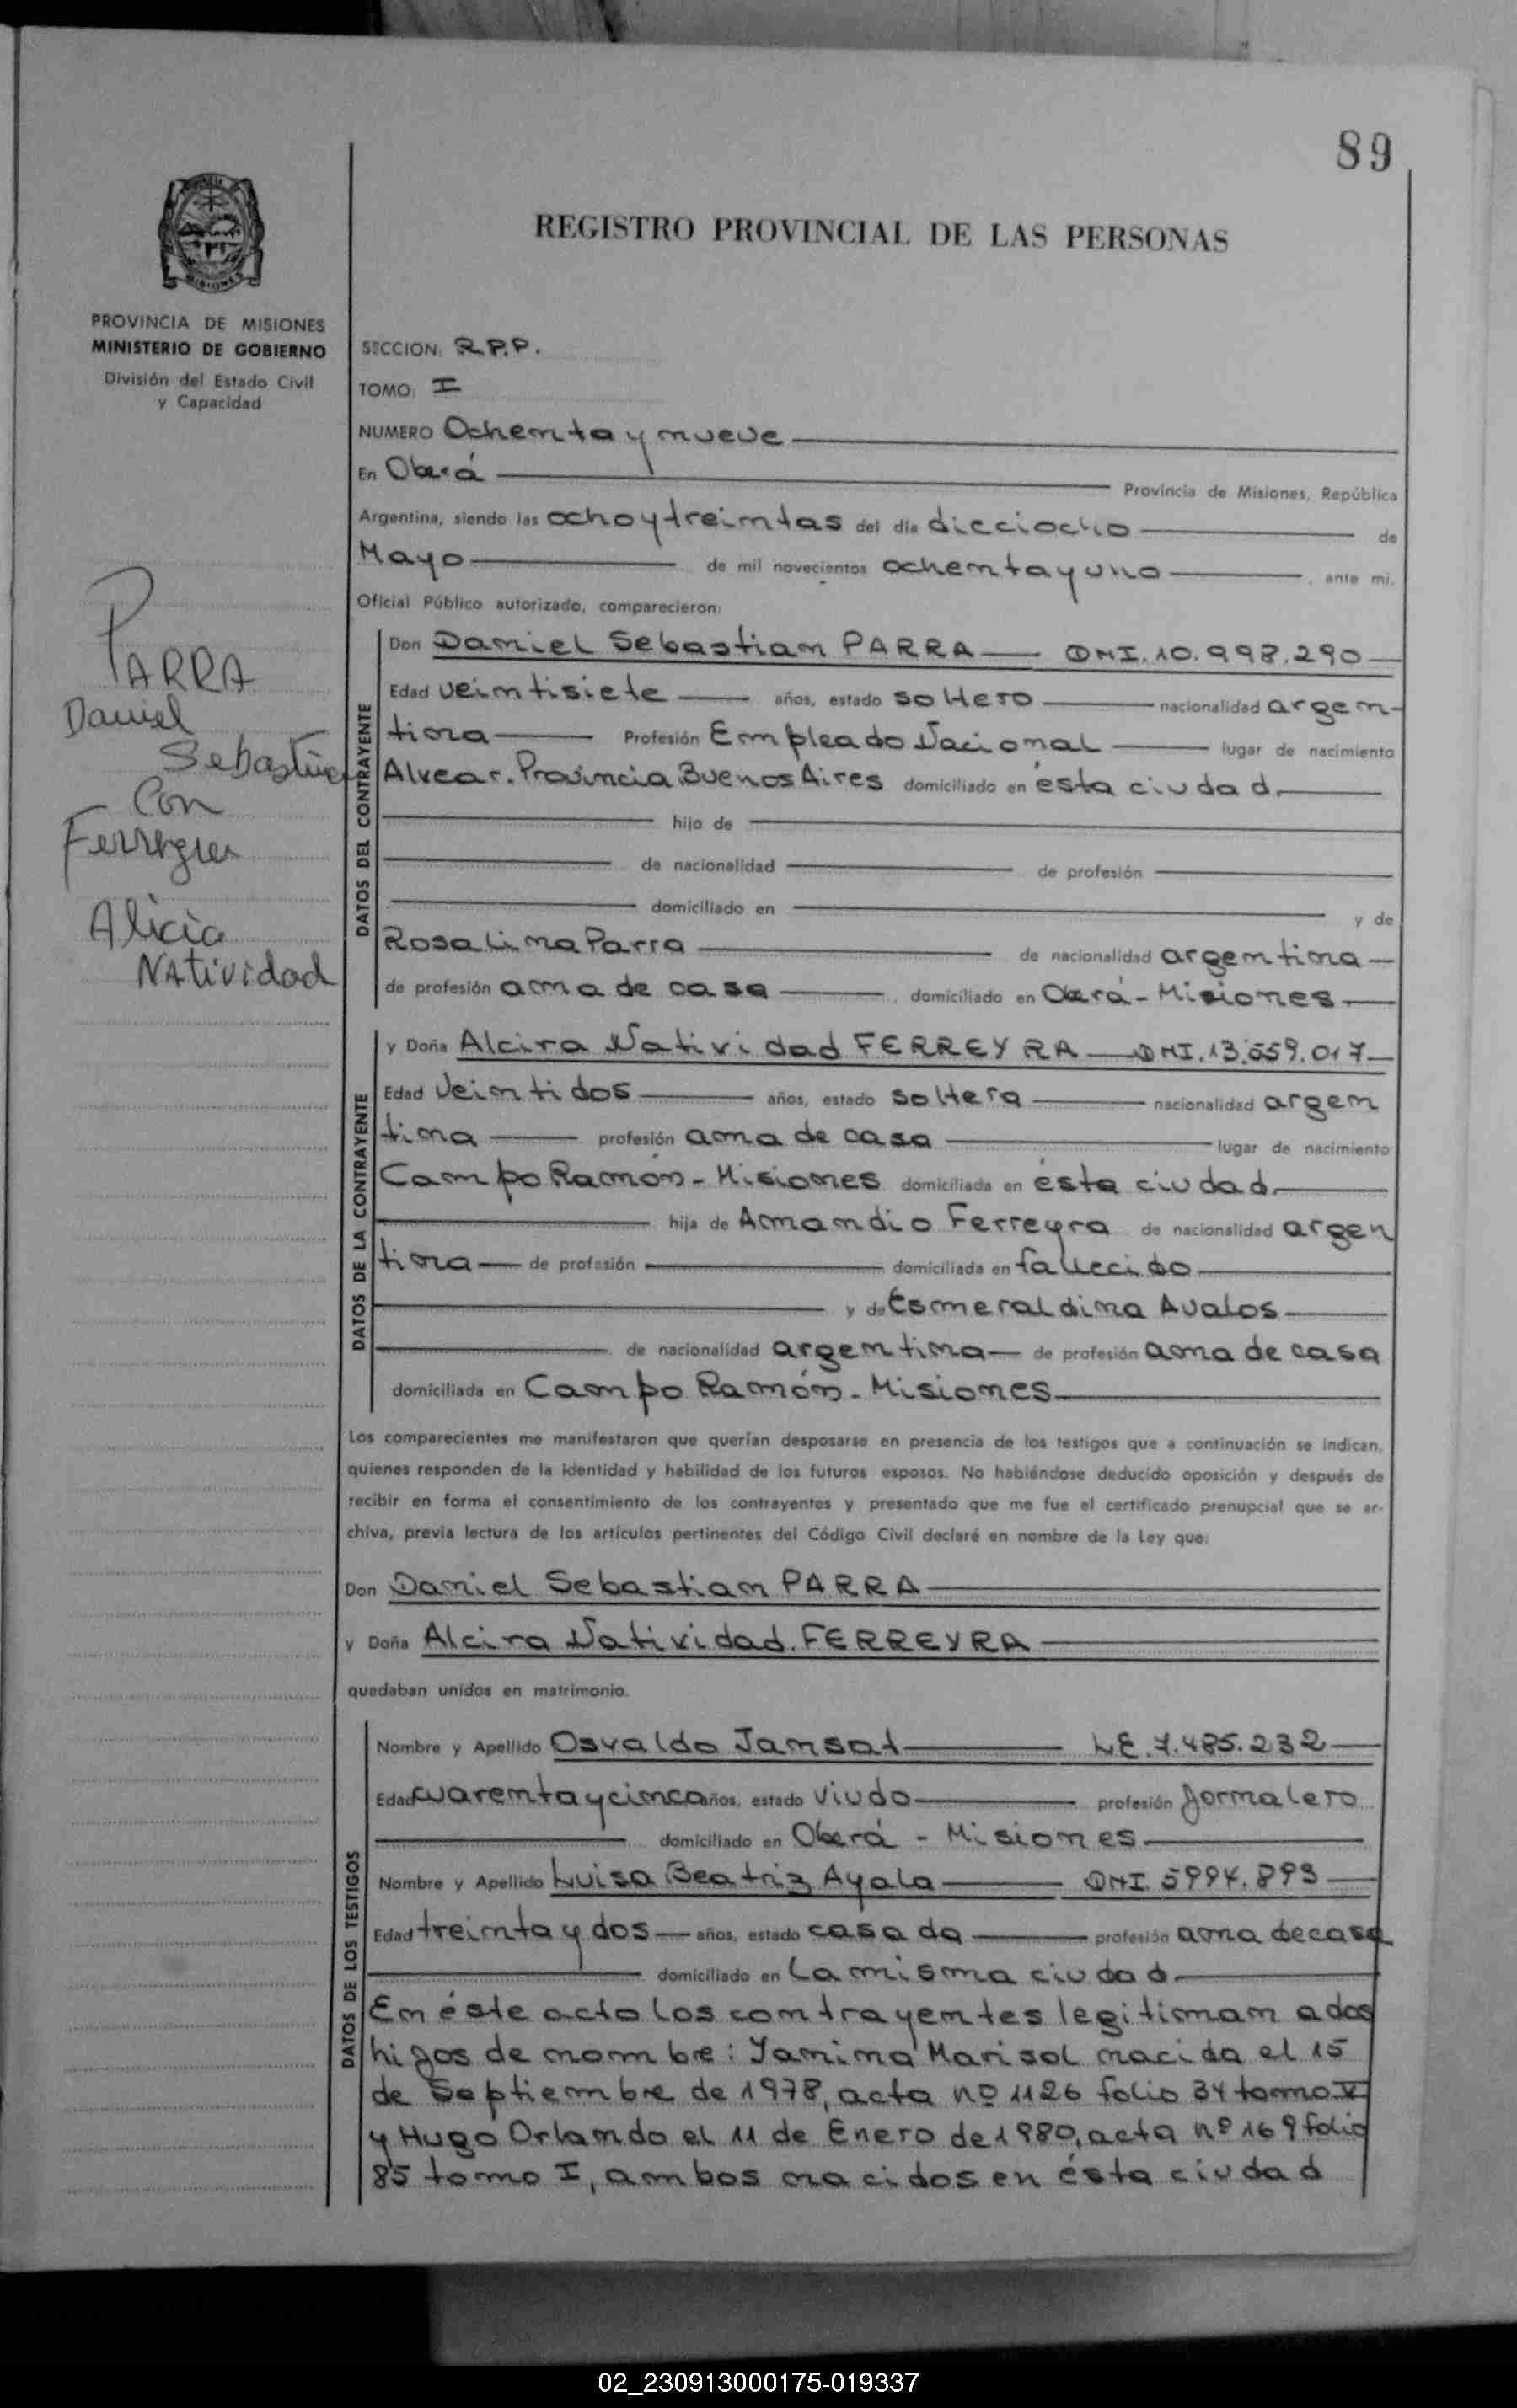 89
REGISTRO PROVINCIAL DE LAS PERSONAS
PROVINCIA DE MISIONES
MINISTERIO DE GOBIERNO
División del Estado Civil
y Capacidad
PARRA
Daniel
Sebastian
Con
Ferreyra
Alicia
NAtividad
SECCION: R.P.P.
TOMO: I
NUMERO Ochenta y nueve
En Oberá Provincia de Misiones, República
Argentina, siendo las ocho y treintas del día dieciocho de
Mayo de mil novecientos ochenta y uno, ante mi,
Oficial Público autorizado, comparecieron:
DATOS DEL CONTRAYENTE
Don Daniel Sebastian PARRA DNI. 10.998.290
Edad veintisiete años, estado soltero nacionalidad argen-
tina Profesión Empleado Nacional lugar de nacimiento
Alvear. Provincia Buenos Aires domiciliado en ésta ciudad.
hijo de
de nacionalidad de profesión
domiciliado en y de
Rosalina Parra de nacionalidad argentina
de profesión ama de casa domiciliado en Oberá - Misiones
DATOS DE LA CONTRAYENTE
y Doña Alcira Natividad FERREYRA DNI. 13.559.017
Edad Veintidos años, estado soltera nacionalidad argen
tina profesión ama de casa lugar de nacimiento
Campo Ramón - Misiones domiciliada en ésta ciudad.
hija de Amandio Ferreyra de nacionalidad argen
tina de profesión domiciliada en fallecido
y de Esmeraldina Avalos
de nacionalidad argentina de profesión ama de casa
domiciliada en Campo Ramón - Misiones
Los comparecientes me manifestaron que querían desposarse en presencia de los testigos que a continuación se indican,
quienes responden de la identidad y habilidad de los futuros esposos. No habiéndose deducido oposición y después de
recibir en forma el consentimiento de los contrayentes y presentado que me fue el certificado prenupcial que se ar-
chiva, previa lectura de los artículos pertinentes del Código Civil declaré en nombre de la Ley que:
Don Daniel Sebastian PARRA
y Doña Alcira Natividad. FERREYRA
quedaban unidos en matrimonio.
DATOS DE LOS TESTIGOS
Nombre y Apellido Osvaldo Jansat LE. 7.485.232
Edad cuarenta y cinco años, estado viudo profesión Jornalero
domiciliado en Oberá - Misiones
Nombre y Apellido Luisa Beatriz Ayala DNI. 5994.893
Edad treinta y dos años, estado casada profesión ama de casa
domiciliado en La misma ciudad
En éste acto los contrayentes legitiman a dos
hijos de nombre: Yanina Marisol nacida el 15
de Septiembre de 1978, acta nº 1126 folio 34 tomo V
y Hugo Orlando el 11 de Enero de 1980, acta nº 169 folio
85 tomo I, ambos nacidos en ésta ciudad
02_230913000175-019337